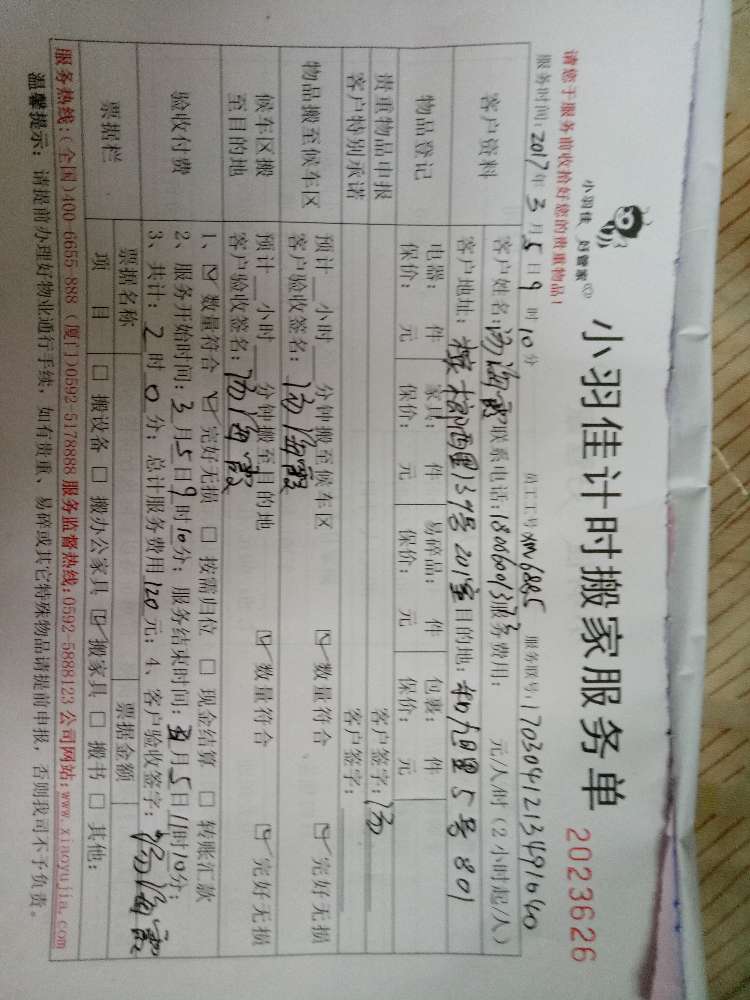 请您于服务前收拾好您的贵重物品！
小羽佳 好管家
小羽佳计时搬家服务单 2023626
服务时间：2017年3月5日9时10分 员工工号 XM6885 服务账号：
客户资料
客户姓名：汤海霞 联系电话：服务费用： 元/人时（2小时起/人）
客户地址：137号201室 目的地：里5号801
物品登记
电器： 件 家具： 件 易碎品： 件 包裹： 件
保价： 元 保价： 元 保价： 元 保价： 元
贵重物品申报 客户签字：汤
客户特别承诺 客户签字：
物品搬至候车区
预计 小时 分钟搬至候车区 ☑数量符合 ☑完好无损
客户验收签名：汤海霞
候车区搬至目的地
预计 小时 分钟搬至目的地 ☑数量符合 ☑完好无损
客户验收签名：汤海霞
验收付费
1、☑数量符合 ☑完好无损 □按需归位 □现金结算 □转账汇款
2、服务开始时间：3月5日9时10分；服务结束时间：月5日11时10分；
3、共计：2时0分；总计服务费用120元；4、客户验收签字：汤海霞
票据栏 票据名称 票据金额
项目 □搬设备 □搬办公家具 ☑搬家具 □搬书 □其他：
服务热线：（全国）400-6655-888（厦门）0592-5178888 服务监督热线：0592-5888123 公司网站：www.xiaoyujia.com
温馨提示：请提前办理好物业通行手续，如有贵重、易碎或其它特殊物品请提前申报，否则我司不予负责。